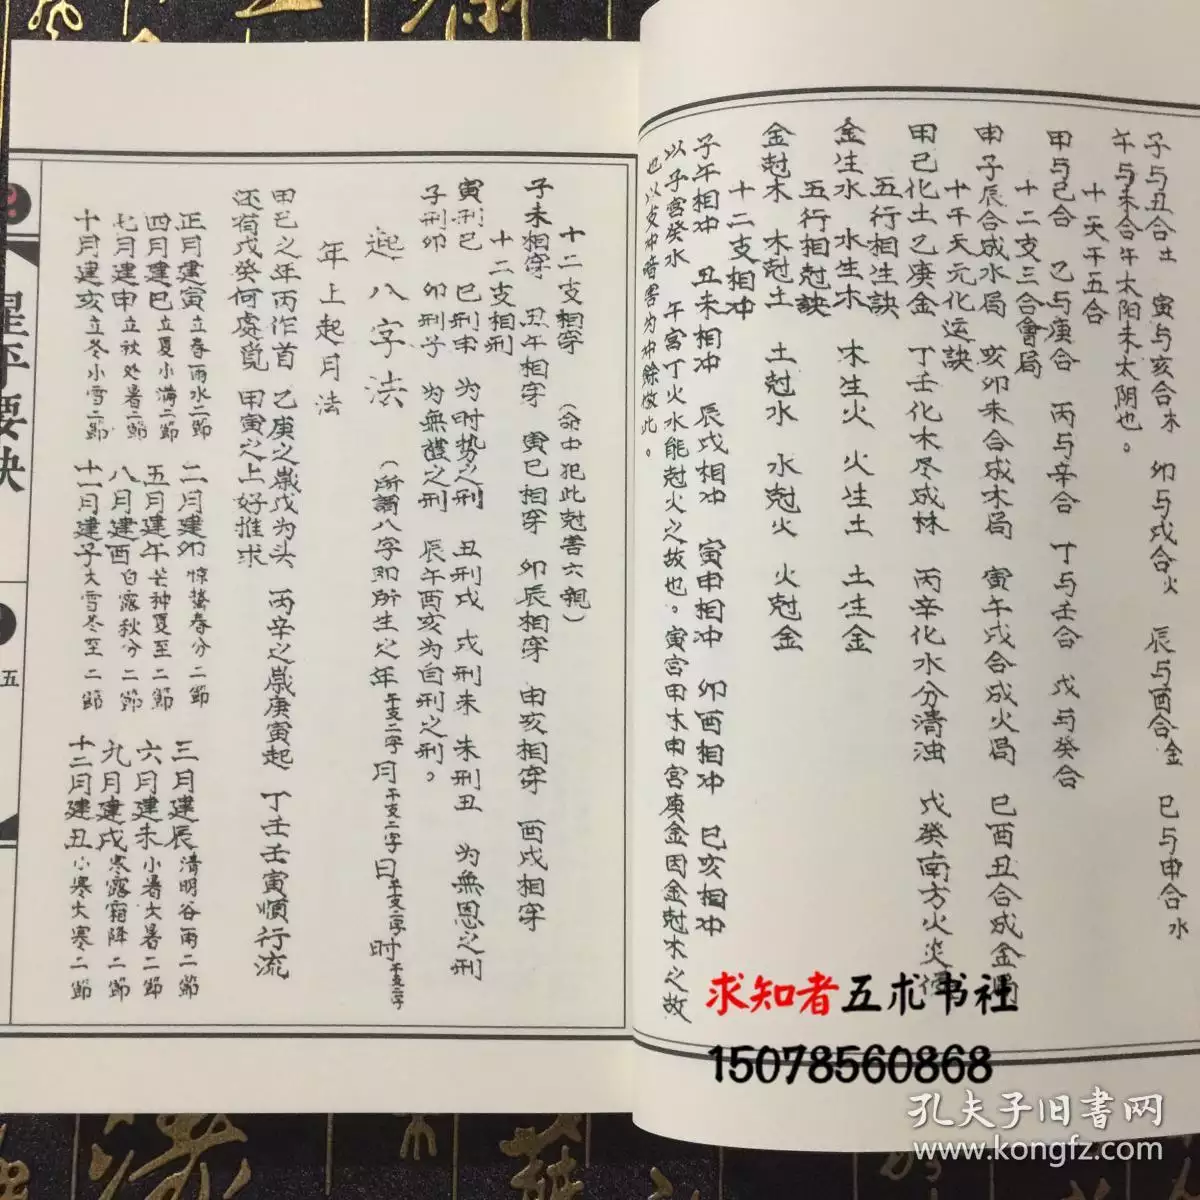 子与丑合土 寅与亥合木 卯与戌合火 辰与酉合金 巳与申合水
午与未合午太阳未太阴也。
十天干五合
甲与己合 乙与庚合 丙与辛合 丁与壬合 戊与癸合
十二支三合會局
申子辰合成水局 亥卯未合成木局 寅午戌合成火局 巳酉丑合成金局
十干天元化运訣
甲己化土乙庚金 丁壬化木尽成林 丙辛化水分清浊 戊癸南方火炎
五行相生訣
金生水 水生木 木生火 火生土 土生金
五行相尅訣
金尅木 木尅土 土尅水 水尅火 火尅金
十二支相冲
子午相冲 丑未相冲 辰戌相冲 寅申相冲 卯酉相冲 巳亥相冲
以子宮癸水 午宮丁火水能尅火之故也。寅宮甲木申宮庚金因金尅木之故
也以支冲暗害为冲餘倣此。
十二支相穿 （命中犯此尅害六親）
子未相穿 丑午相穿 寅巳相穿 卯辰相穿 申亥相穿 酉戌相穿
十二支相刑
寅刑巳 巳刑申 为时势之刑 丑刑戌 戌刑未 未刑丑 为無恩之刑
子刑卯 卯刑子 为無禮之刑 辰午酉亥为自刑之刑。
起八字法 （所謂八字即所生之年干支二字月干支二字日干支二字时干支二字
年上起月法
甲己之年丙作首 乙庚之歲戊为头 丙辛之歲庚寅起 丁壬壬寅順行流
还有戊癸何處覓 甲寅之上好推求
正月建寅立春雨水二節 二月建卯惊蟄春分二節 三月建辰清明谷雨二節
四月建巳立夏小满二節 五月建午芒种夏至二節 六月建未小暑大暑二節
七月建申立秋处暑二節 八月建酉白露秋分二節 九月建戌寒露霜降二節
十月建亥立冬小雪二節 十一月建子大雪冬至二節 十二月建丑小寒大寒二節
星平要诀
五
求知者五术书社
15078560868
孔夫子旧書网
www.kongfz.com